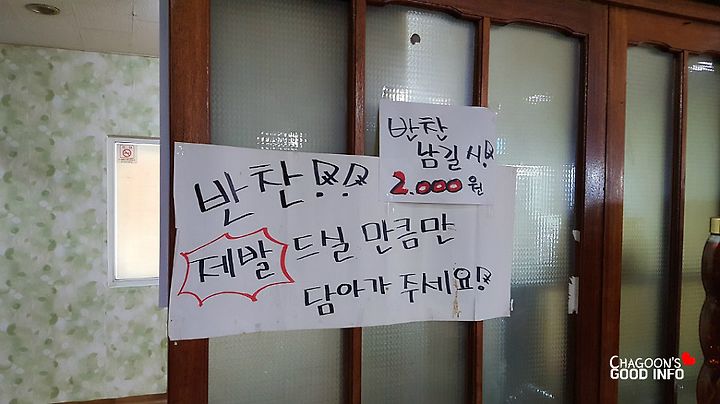 반찬!!
제발 드실 만큼만
담아가 주세요!
반찬
남길 시!
2.000원
CHAGOON'S
GOOD INFO